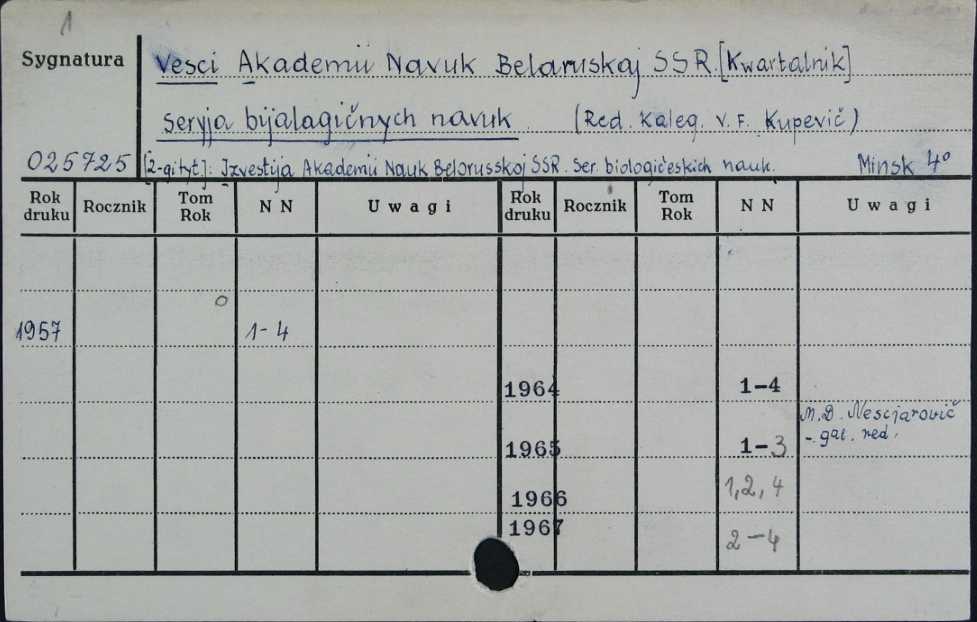 1
Sygnatura
Vesci Akademii Navuk Belaruskaj SSR. [Kwartalnik]
seryja bijalagičnych navuk (Red. Kaleg. V. F. Kupevič)
025725 [2-gi tyt]: Izvestija Akademii Nauk Belorusskoj SSR. Ser. biologičeskich nauk. Minsk 4°
Rok druku Rocznik Tom Rok NN Uwagi Rok druku Rocznik Tom Rok NN Uwagi
1957 1-4
1964 1-4
M.D. Nescjarovič
1965 1-3 - gał. red.
1966 1,2,4
1967 2-4